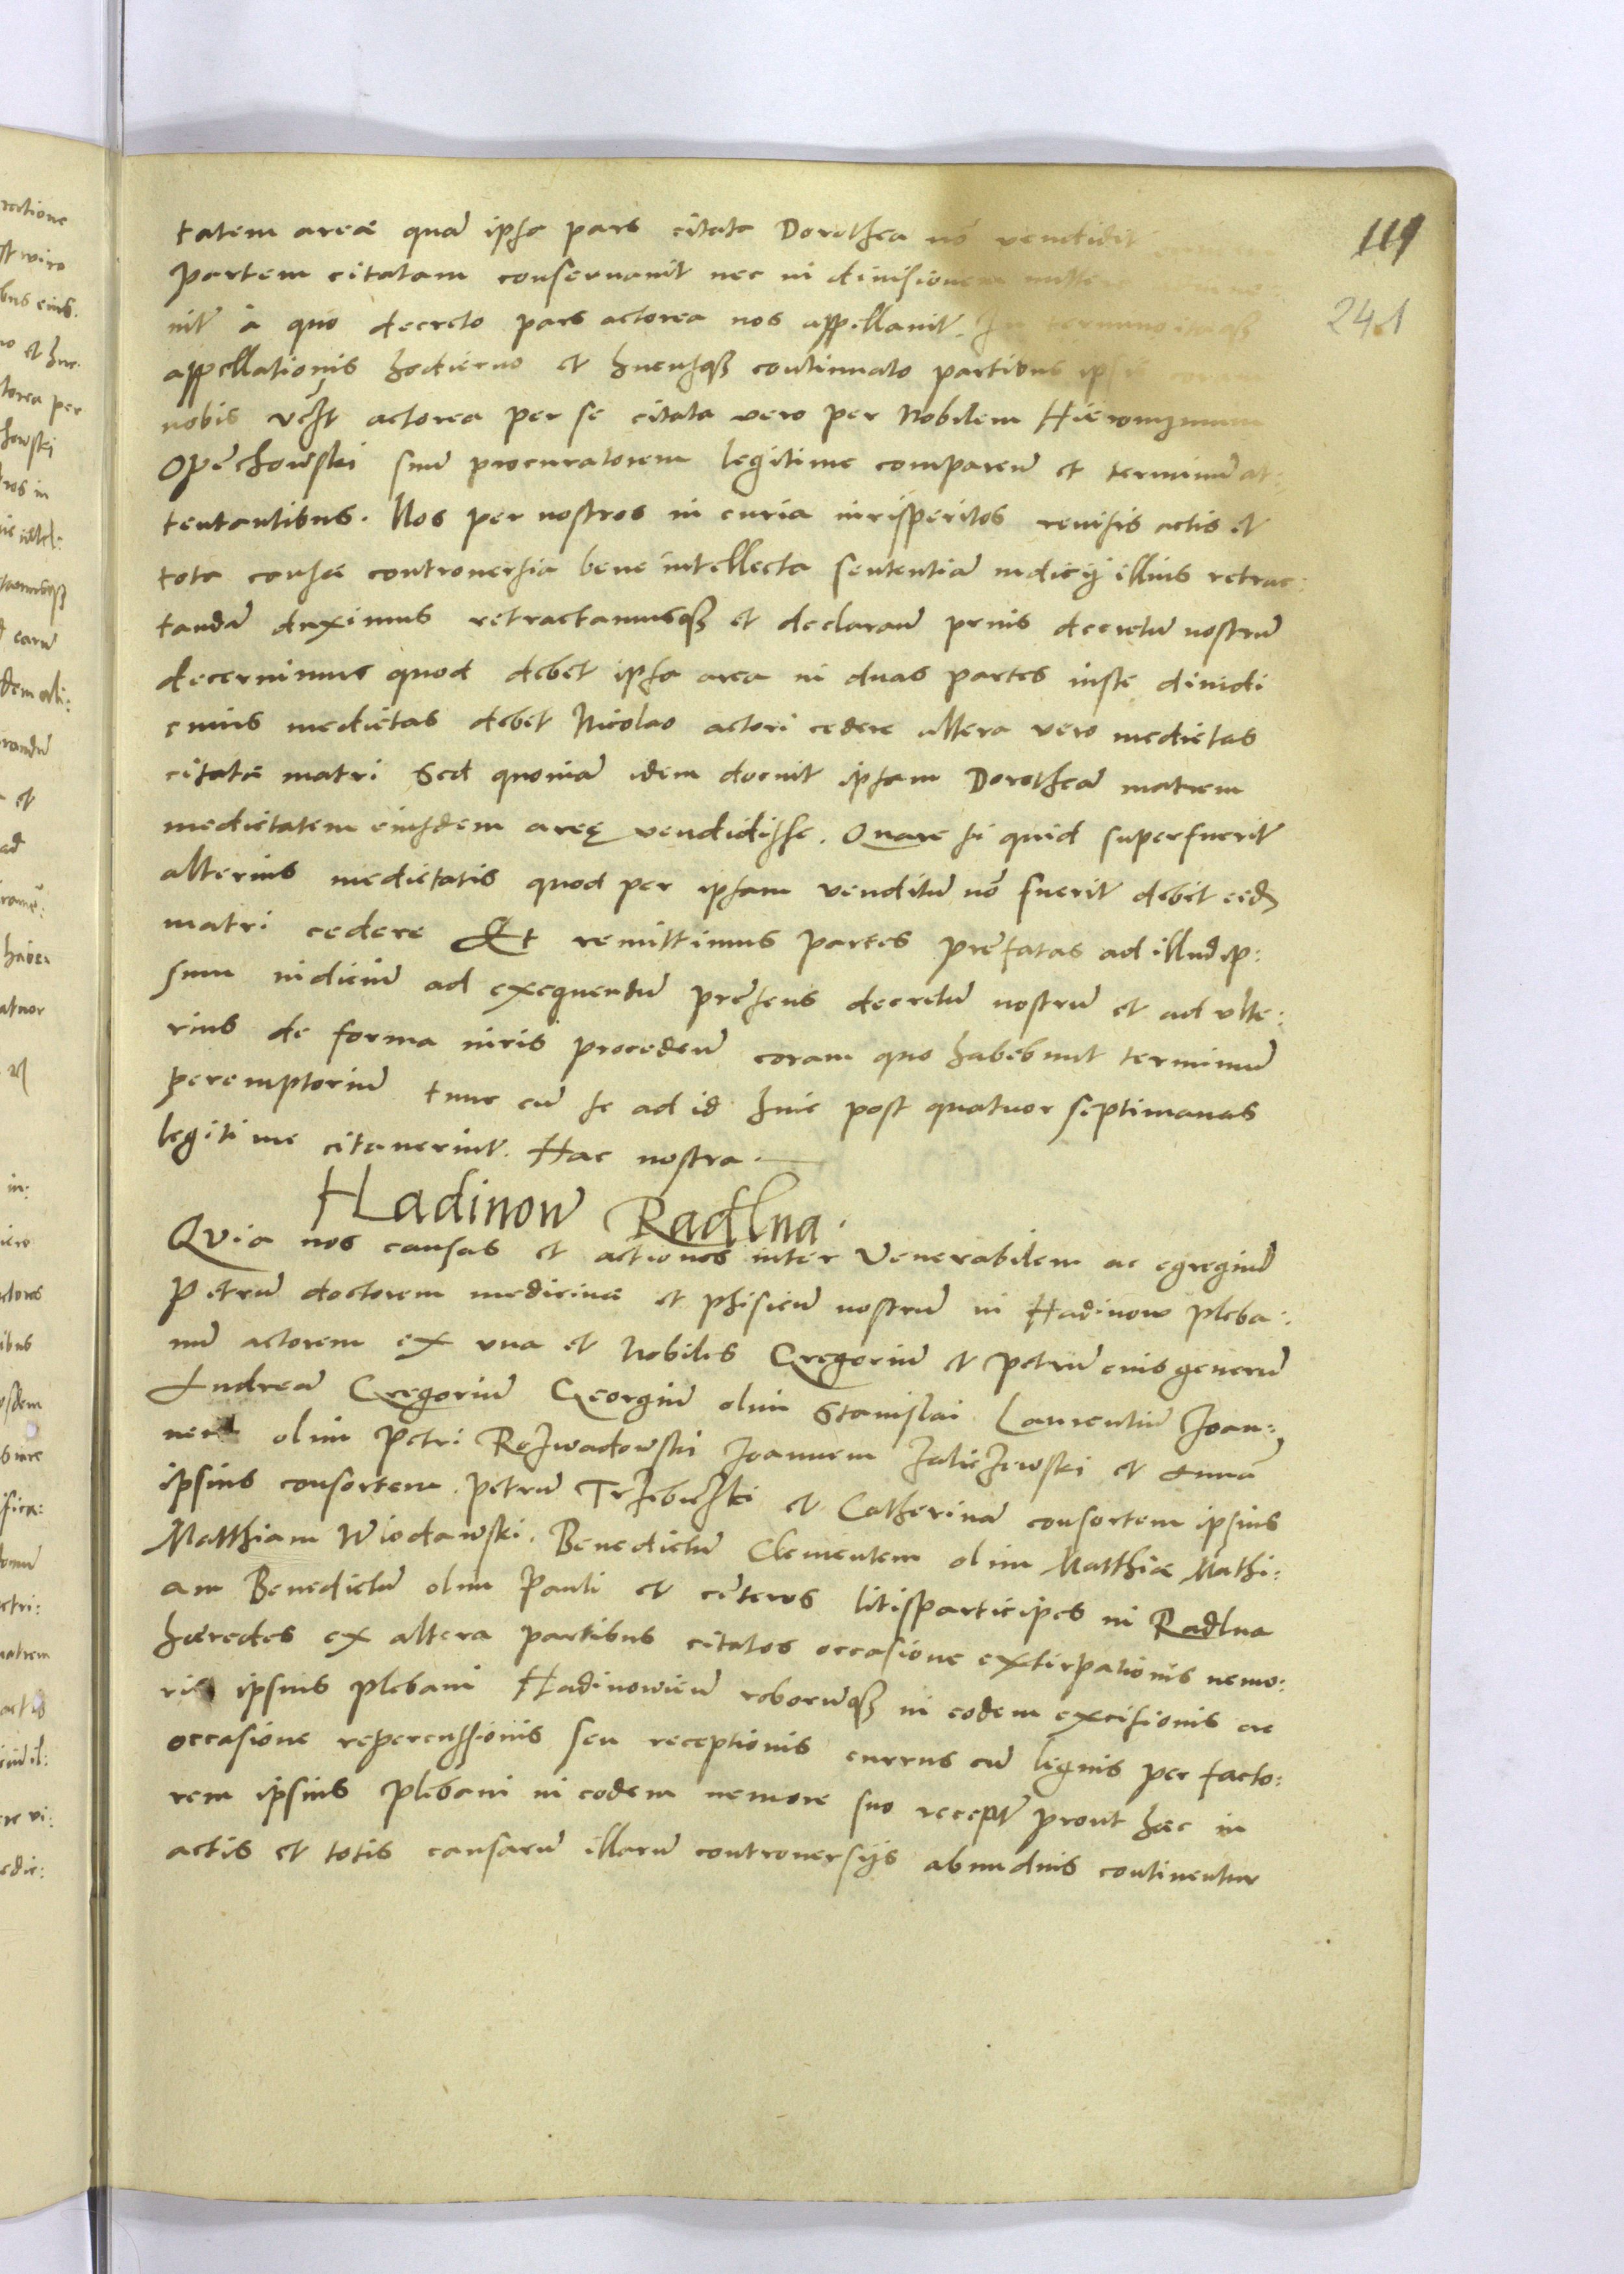 119
241
tatem areae quā ipsa pars citata Dorothea nō vendidit
partem citatam conseruauit nec in diuisionem mittere
nit à quo decreto pars actorea nos appellauit. In termino itaqꝫ
appellationis hodierno et hucusqꝫ continuato partibus ipsis coram
nobis actorea per se citata vero per Nobilem Hieronymum
Opechowski suū procuratorem legitime compareñ et terminū at:
tentantibus. Nos per nostros in curia iurisperitos reuisis actis et
tota causae controuersia bene intellecta sententiā iudicij illius retrac:
tandā duximus retractamusqꝫ et declaram̃ pn̄tis decretū nostrū
decernimus quod debet ipsa area in duas partes iuste diuidi
cuius medietas debet Nicolao actori cedere altera vero medietas
citatae matri Sed quoniā idem docuit ipsam Dorotheā matrem
medietatem eiusdem areę vendidisse. Quare si quid superfuerit
alterius medietatis quod per ipsam venditū nō fuerit debet eid
matri cedere Et remittimus partes praefatas ad illud ip:
sum iudiciū ad exequendū praesens decretū nostrū et ad vlte:
rius de forma iuris procedeñ coram quo habebunt terminū
peremptoriū tunc cū se ad id huic post quatuor septimanas
legitime citauerint. Hac nostra.
Hadinow Radlna.
Quia nos causas et actiones inter Venerabilem ac egregiū
Petrū doctorem medicinae et phisicū nostrū in Hadinow pleba:
nū actorem ex vna et Nobiles Gregoriū et Petrū eius generū
Andreā Gregoriū Georgiū olim Stanislai Laurentiū Joan:
nem olim Petri Rozwadowski Joannem Zaliczewski et Annā
ipsius consortem Petrū Trzebuski et Catherinam consortem ipsius
Matthiam Wiodawski. Benedictū Clementem olim Matthiae Mathi:
am Benedictū olim Pauli et caeteros litisparticipes in Radlna
haeredes ex altera partibus citatos occasione extirpationis nemo:
ris ipsius plebani Hadinowieñ roborumqꝫ in eodem excisionis ac
occasione repercussionis seu receptionis currus cū lignis per facto:
rem ipsius plebani in eodem nemore suo recept̃ prout haec in
actis et totis causarū illarū controuersijs abundius continentur